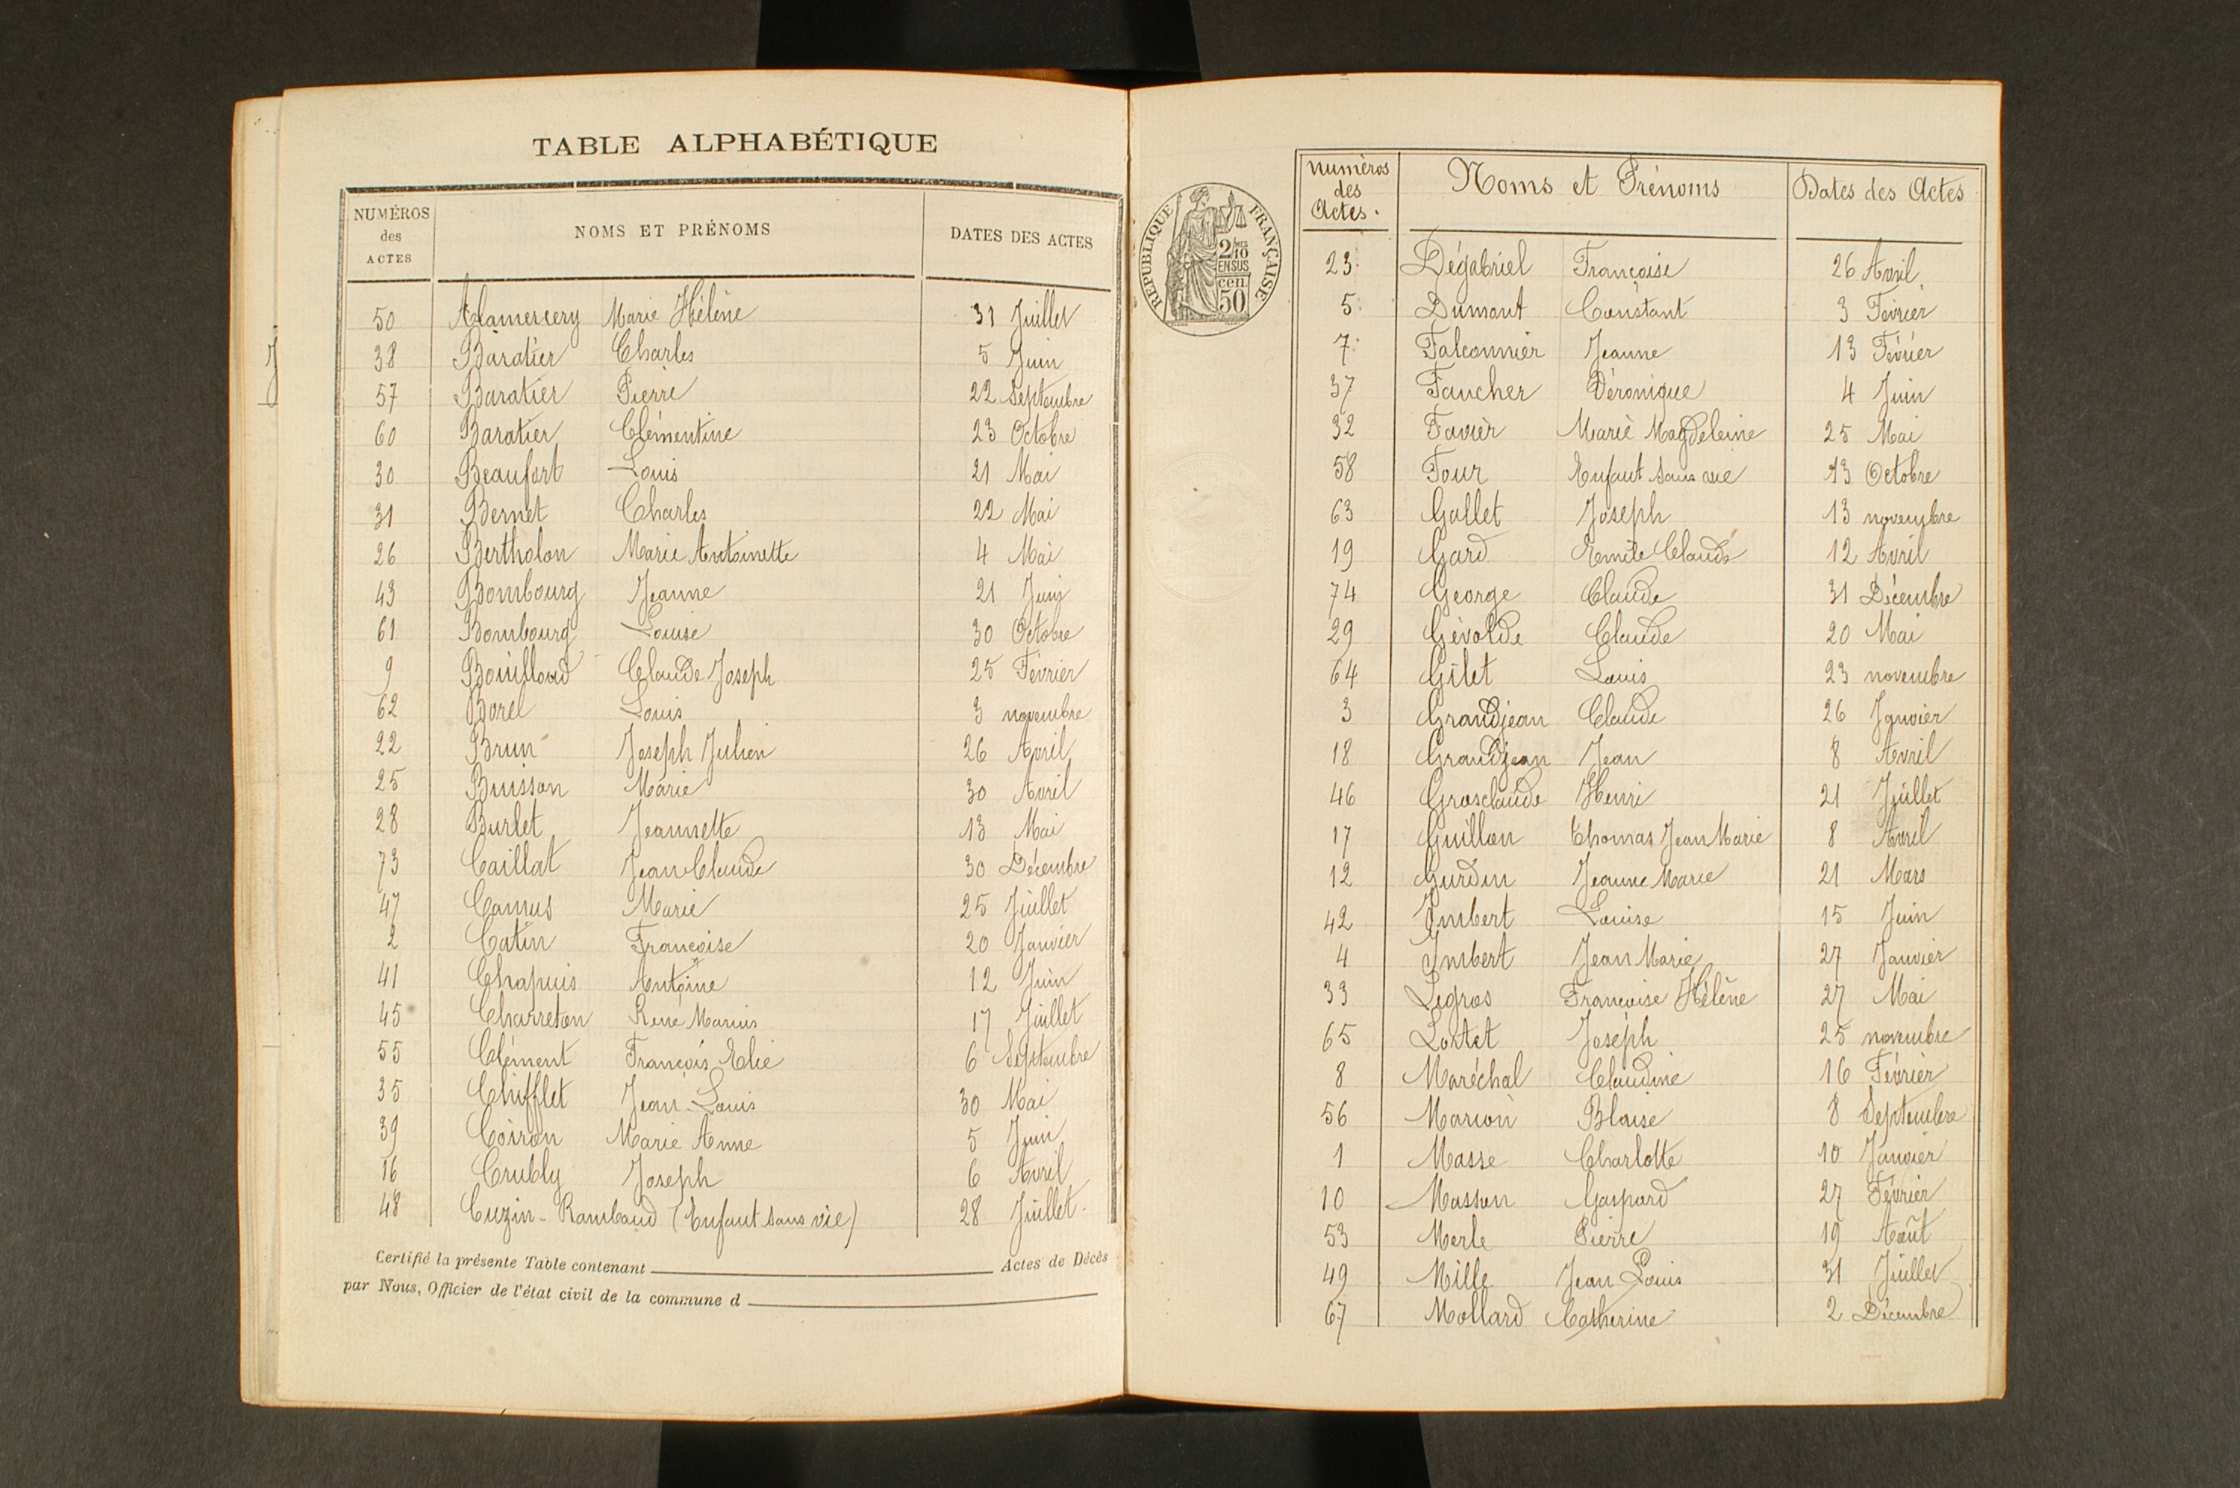 TABLE ALPHABÉTIQUE
NUMÉROS des ACTES NOMS ET PRÉNOMS DATES DES ACTES
50 Alamercery Marie Hélène 31 Juillet
38 Baratier Charles 5 Juin
57 Baratier Pierre 22 Septembre
60 Baratier Clémentine 23 Octobre
30 Beaufort Louis 21 Mai
31 Bernet Charles 22 Mai
26 Bertholon Marie Antoinette 4 Mai
43 Bombourg Jeanne 21 Juin
61 Bombourg Louise 30 Octobre
9 Bouilloud Claude Joseph 25 Février
62 Borel Louis 3 novembre
22 Brun Joseph Julien 26 Avril
25 Buisson Marie 30 Avril
28 Burlet Jeannette 13 Mai
73 Caillat Jean Claude 30 Décembre
47 Camus Marie 25 Juillet
2 Catin Françoise 20 Janvier
41 Chapuis Antoine 12 Juin
45 Charreton René Marius 17 Juillet
55 Clément François Elie 6 Septembre
35 Chifflet Jean-Louis 30 Mai
39 Coiron Marie Anne 5 Juin
16 Crubly Joseph 6 Avril
48 Cuzin-Rambaud (Enfant sans vie) 28 Juillet
Certifié la présente Table contenant Actes de Décès
par Nous, Officier de l'état civil de la commune d
J
RÉPUBLIQUE FRANÇAISE
2/10
EN SUS
cen.
50
Numéros des Actes. Noms et Prénoms Dates des Actes
23 Dégabriel Françoise 26 Avril
5 Dumont Constant 3 Février
7 Falconnier Jeanne 13 Février
37 Faucher Véronique 4 Juin
32 Favier Marie Magdeleine 25 Mai
58 Four Enfant sans vie 13 Octobre
63 Gallet Joseph 13 novembre
19 Gard Emile Claude 12 Avril
74 George Claude 31 Décembre
29 Gévolde Claude 20 Mai
64 Gilet Louis 23 novembre
3 Grandjean Claude 26 Janvier
18 Grandjean Jean 8 Avril
46 Grosclaude Henri 21 Juillet
17 Guillon Thomas Jean Marie 8 Avril
12 Gurdin Jeanne Marie 21 Mars
42 Imbert Louise 15 Juin
4 Imbert Jean Marie 27 Janvier
33 Legros Françoise Hélène 27 Mai
65 Lortet Joseph 25 novembre
8 Maréchal Claudine 16 Février
56 Marion Blaise 8 Septembre
1 Masse Charlotte 10 Janvier
10 Masson Gaspard 27 Février
53 Merle Pierre 19 Août
49 Mille Jean Louis 31 Juillet
67 Mollard Catherine 2 Décembre